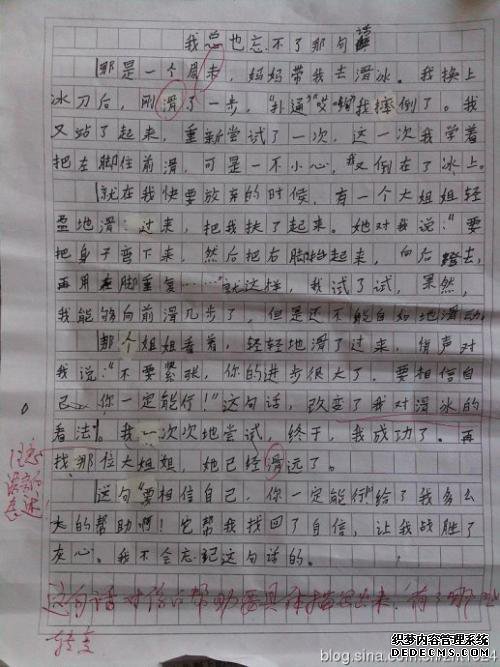 我总也忘不了那句话
那是一个周末，妈妈带我去滑冰。我换上
冰刀后，刚滑了一步，“扑通”“哎哟”我摔倒了。我
又站了起来，重新尝试了一次，这一次我学着
把左脚往前滑，可是一不小心，我又倒在了冰上。
就在我快要放弃的时候，有一个大姐姐轻
盈地滑过来，把我扶了起来。她对我说：“要
把身子弯下来，然后把右脚抬起来，向后蹬去，
再用左脚重复……”就这样，我试了试，果然，
我能够向前滑几步了，但是还不能自如地滑动。
那个姐姐看着，轻轻地滑了过来，悄声对
我说：“不要紧张，你的进步很大了，要相信自
己，你一定能行！”这句话，改变了我对滑冰的
看法。我一次次地尝试，终于，我成功了。再
找那位大姐姐，她已经滑远了。
这句“要相信自己，你一定能行”给了我多么
大的帮助啊！它帮我找回了自信，让我战胜了
灰心。我不会忘记这句话的。
注意
这句话对你的帮助要具体描写出来，有了哪些
转变
blog.sina.com.cn
织梦内容管理系统
DEDECMS.COM